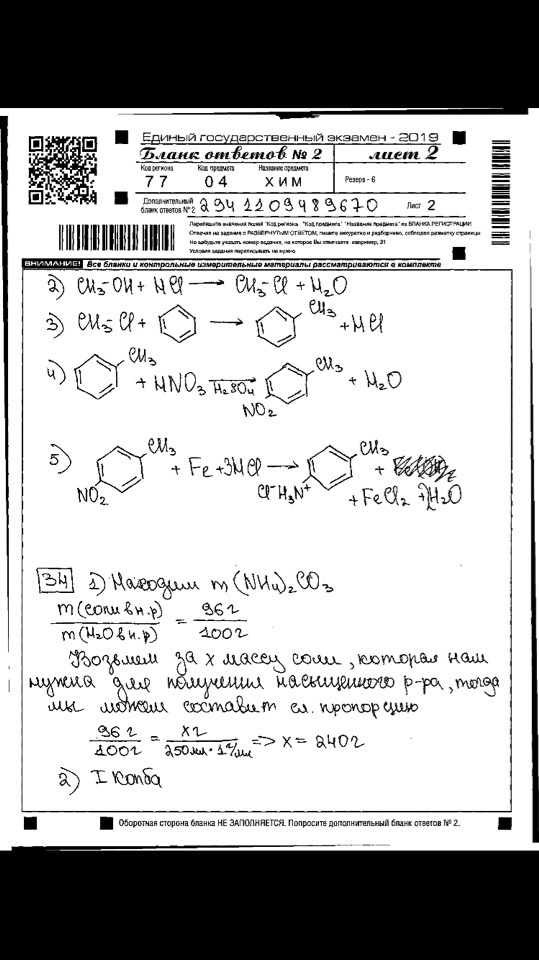 Единый государственный экзамен - 2019
Бланк ответов № 2 лист 2
Код региона Код предмета Название предмета
77 04 ХИМ Резерв - 6
Дополнительный бланк ответов № 2 2941109489670 Лист 2
Перепишите значения полей "Код региона", "Код предмета", "Название предмета" из БЛАНКА РЕГИСТРАЦИИ.
Отвечая на задания с РАЗВЕРНУТЫМ ОТВЕТОМ, пишите аккуратно и разборчиво, соблюдая разметку страницы
Не забудьте указать номер задания, на которое Вы отвечаете, например, 31
Условия задания переписывать не нужно.
ВНИМАНИЕ! Все бланки и контрольные измерительные материалы рассматриваются в комплекте
2) CH₃-OH + HCl ⟶ CH₃-Cl + H₂O
3) CH₃-Cl + ⟶ CH₃ + HCl
4) CH₃ + HNO₃ H₂SO₄ ⟶ CH₃ NO₂ + H₂O
5) CH₃ NO₂ + Fe + 3HCl ⟶ CH₃ Cl⁻H₃N⁺ +
+ FeCl₂ + H₂O
34 1) Находим m (NH₄)₂CO₃
m(соли в н.р) / m(H₂O в н.р) = 96 г / 100 г
Возьмем за x массу соли, которая нам
нужна для получения насыщенного р-ра, тогда
мы можем составит сл. пропорцию
96 г / 100 г = x г / 250 мл · 1 г/мл => x = 240 г
2) I Колба
Оборотная сторона бланка НЕ ЗАПОЛНЯЕТСЯ. Попросите дополнительный бланк ответов № 2.